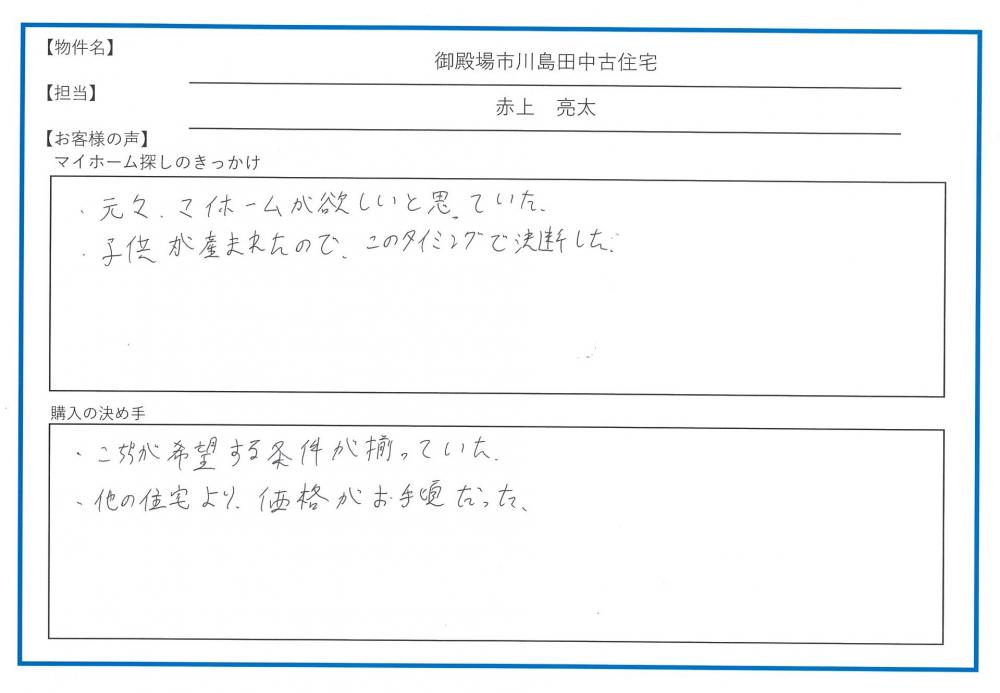 【物件名】
御殿場市川島田中古住宅
【担当】
赤上　亮太
【お客様の声】
マイホーム探しのきっかけ
・元々、マイホームが欲しいと思っていた。
・子供が産まれたので、このタイミングで決断した。
購入の決め手
・こちらが希望する条件が揃っていた。
・他の住宅より、価格がお手頃だった。